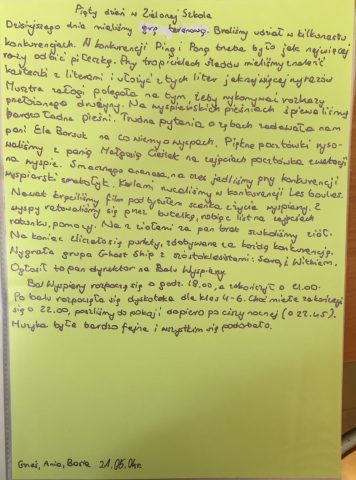 Piąty dzień w Zielonej Szkole
Dzisiejszego dnia mieliśmy grę terenową. Braliśmy udział w kilkunastu
konkurencjach. W konkurencji Ping i Pong trzeba było jak najwięcej
razy odbić piłeczkę. Przy tropicielach śladów mieliśmy znaleźć
karteczki z literami i ułożyć z tych liter jak najwięcej wyrazów
Musztra załogi polegała na tym, żeby wykonywać rozkazy
drużyny. Na wyspiańskich pieśniach śpiewaliśmy
bardzo ładne pieśni. Trudne pytania o zadawała nam
pani Ela Borsuk na co wiemy o wyspach. Piękne pocztówki ryso-
waliśmy z panią Małgosią Cieślak na zajęciach pocztówka z wakacji
na wyspie. Smacznego ananasa, na czas jedliśmy przy konkurencji
wyspiarski smakołyk. Kulami rzucaliśmy w konkurencji Les boules.
Nawet kręciliśmy film pod tytułem scenka z życia wyspiarzy. Z
wyspy ratowaliśmy się przez butelkę, robiąc list na zajęciach
ratunku, pomocy. Na z ziołami za pan brat szukaliśmy ziół.
Na koniec zliczało się punkty, zdobywane za każdą konkurencję.
Wygrała grupa Ghost Ship z szóstoklasistami: Sarą i Witkiem.
Ogłosił to pan dyrektor na Balu Wyspiarzy.
Bal Wyspiarzy rozpoczął się o godz. 18.00, a zakończył o 21.00.
Po balu rozpoczęła się dyskoteka dla klas 4-6. Choć miała zakończyć
się o 22.00, poszliśmy do pokoi dopiero po ciszy nocnej (o 22.45).
Muzyka była bardzo fajna i wszystkim się podobało.
Ania, 21.05.